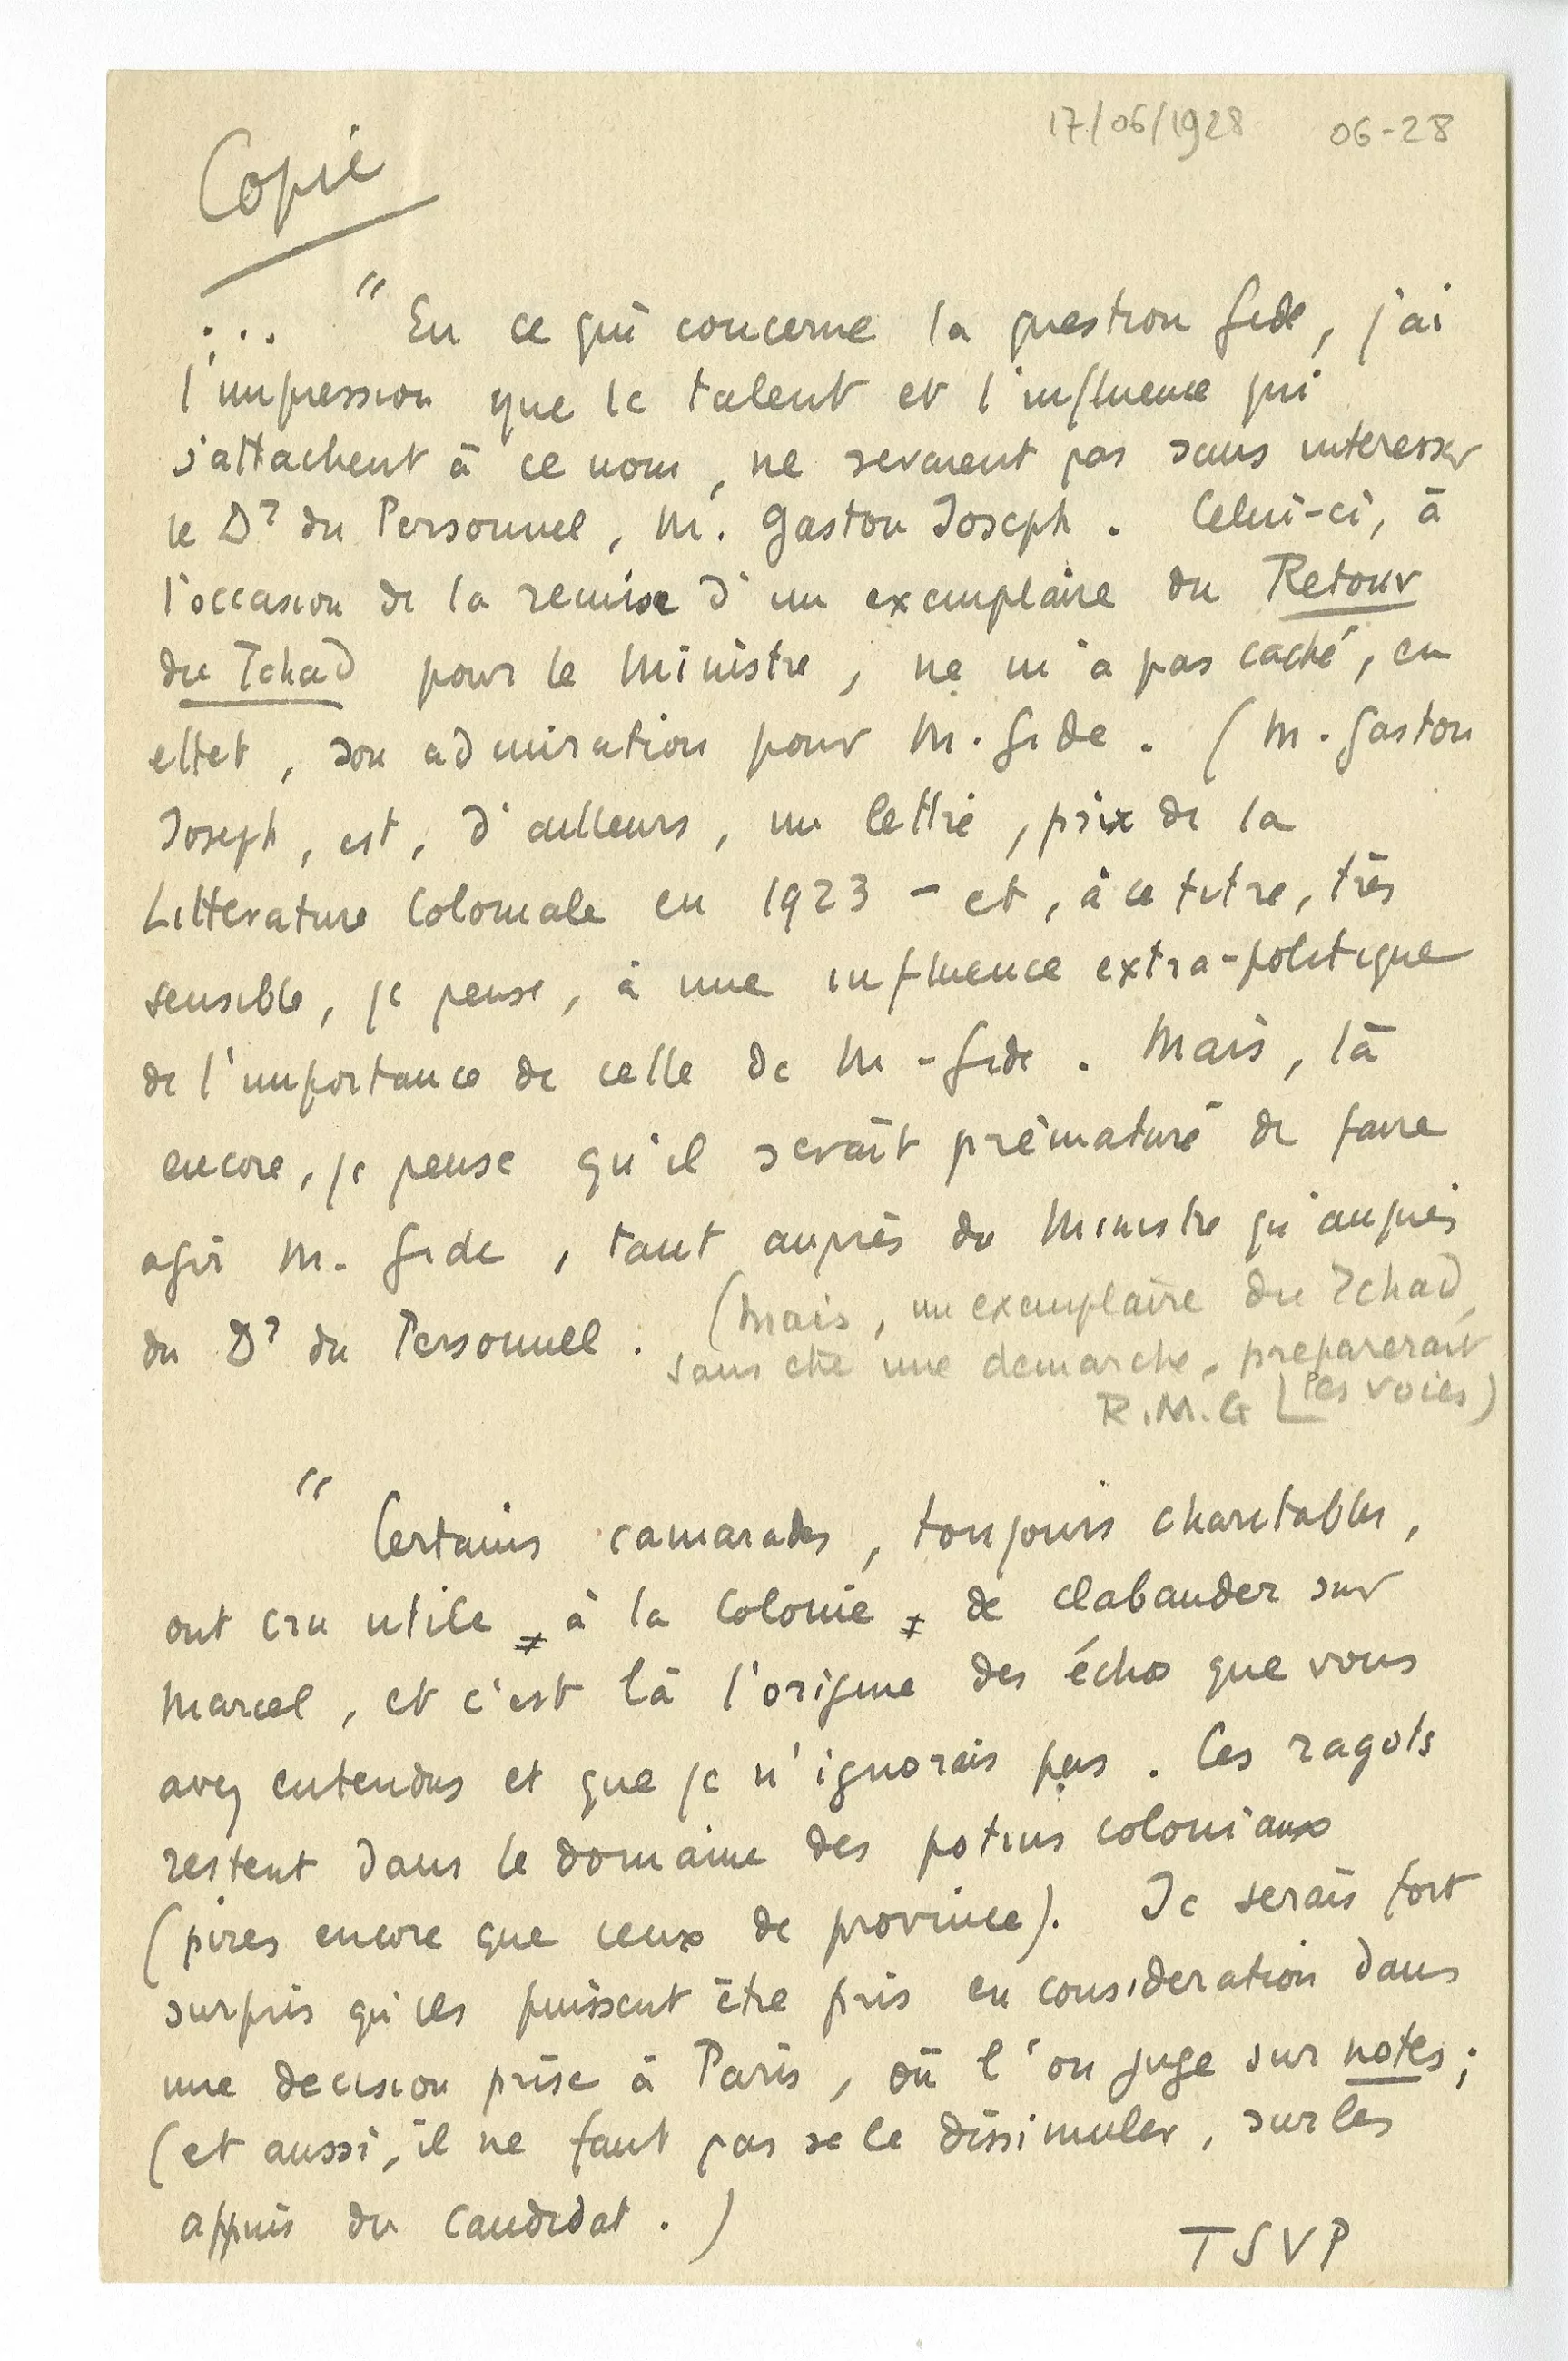 17/06/1928 06-28
Copie
... " En ce qui concerne la question Gide, j'ai
l'impression que le talent et l'influence qui
s'attachent à ce nom, ne seraient pas sans interesser
le Dr du Personnel, M. Gaston Joseph. Celui-ci, à
l'occasion de la remise d'un exemplaire du Retour
du Tchad pour le Ministre, ne m'a pas caché, en
effet, son admiration pour M. Gide. (M. Gaston
Joseph, est, d'ailleurs, un lettré, prix de la
Litterature Coloniale en 1923 - et, à ce titre, très
sensible, je pense, à une influence extra-politique
de l'importance de celle de M. Gide. Mais, là
encore, je pense qu'il serait prématuré de faire
agir M. Gide, tant auprès du Ministre qu'auprès
du Dr du Personnel.
(Mais, un exemplaire du Tchad,
sans etre une demarche, preparerait
les voies)
R.M.G
" Certains camarades, toujours charitables,
ont cru utile, à la Colonie, de clabauder sur
Marcel, et c'est là l'origine des échos que vous
avez entendus et que je n'ignorais pas. Ces ragots
restent dans le domaine des potins coloniaux
(pires encore que ceux de province). Je serais fort
surpris qu'ils puissent être pris en consideration dans
une decision prise à Paris, où l'on juge sur notes;
(et aussi, il ne faut pas se le dissimuler, sur les
appuis du candidat.)
TSVP